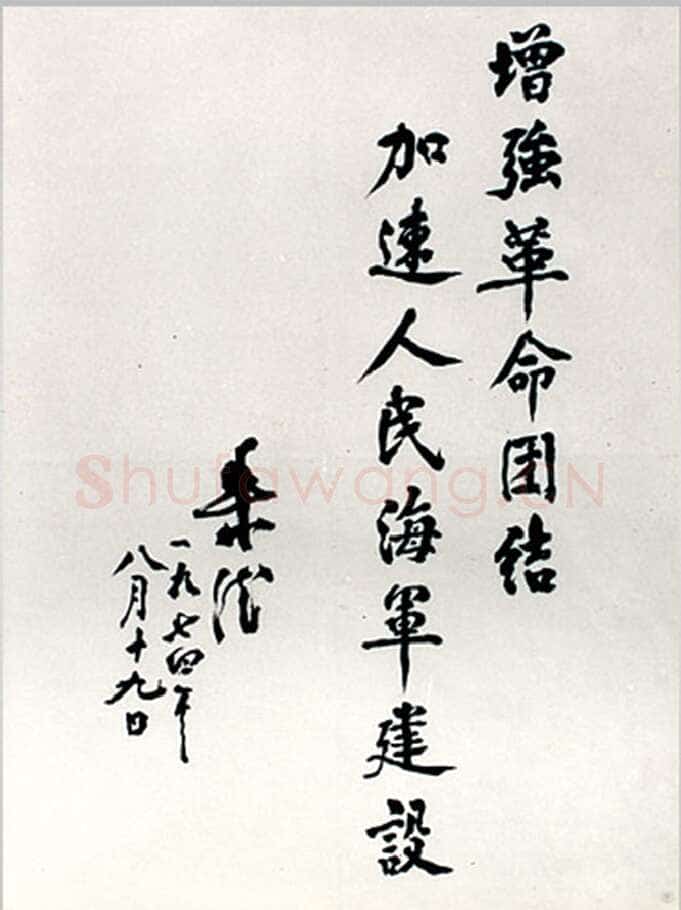 增強革命团结
加速人民海軍建設
一九七四年
八月十九日
Shufawang.CN